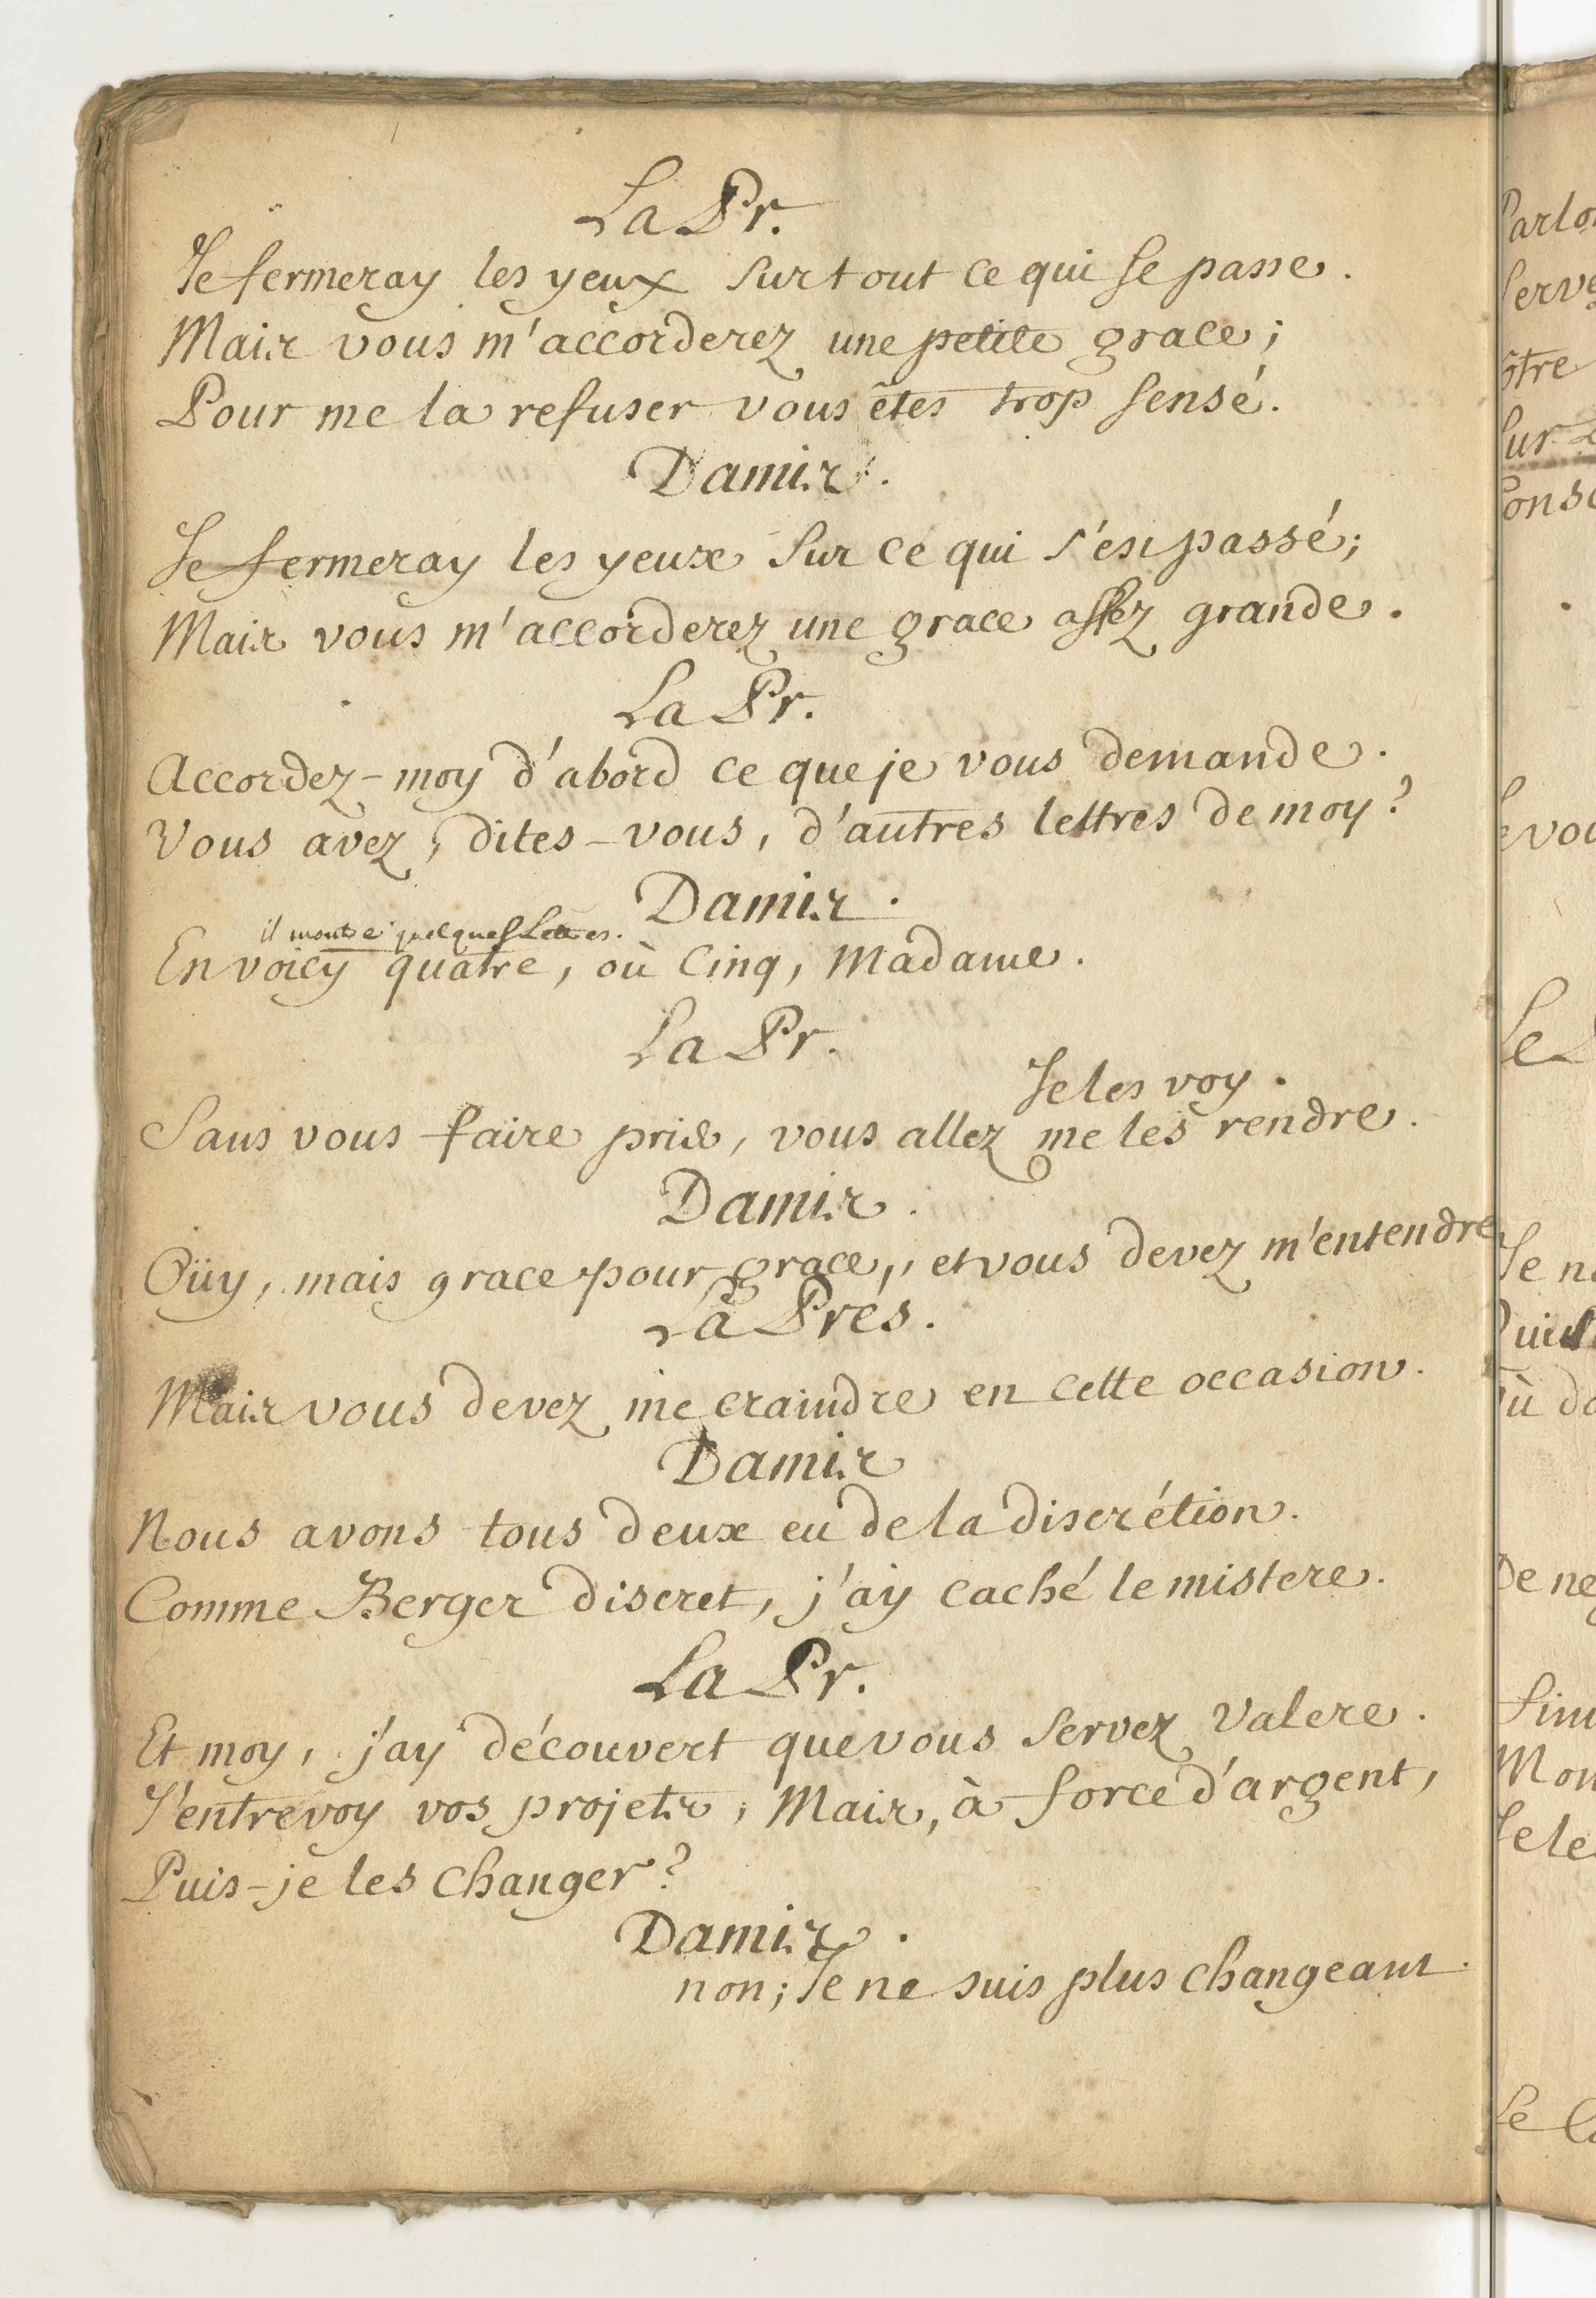 La Pr.
Je fermeray les yeux sur tout ce qui se passe.
Mais vous m'accorderez une petite grace;
Pour me la refuser vous êtes trop sensé.
Damis.
Je fermeray les yeux sur ce qui s'est passé;
Mais vous m'accorderez une grace assez grande.
La Pr.
Accordez-moy d'abord ce que je vous demande.
Vous avez, dites-vous, d'autres lettres de moy?
Damis.
il montre quelques Lettres.
En voicy quatre, où cinq, Madame.
La Pr.
Je les voy.
Sans vous faire prier, vous allez me les rendre.
Damis.
Oüy, mais grace pour grace, et vous devez m'entendre
La Prés.
Mais vous devez me craindre en cette occasion.
Damis
Nous avons tous deux eu de la discrétion.
Comme Berger discret, j'ay caché le mistere.
La Pr.
Et moy, j'ay découvert que vous servez Valere.
J'entrevoy vos projets; Mais, à force d'argent,
Puis-je les changer?
Damis.
non; Je ne suis plus changeant.